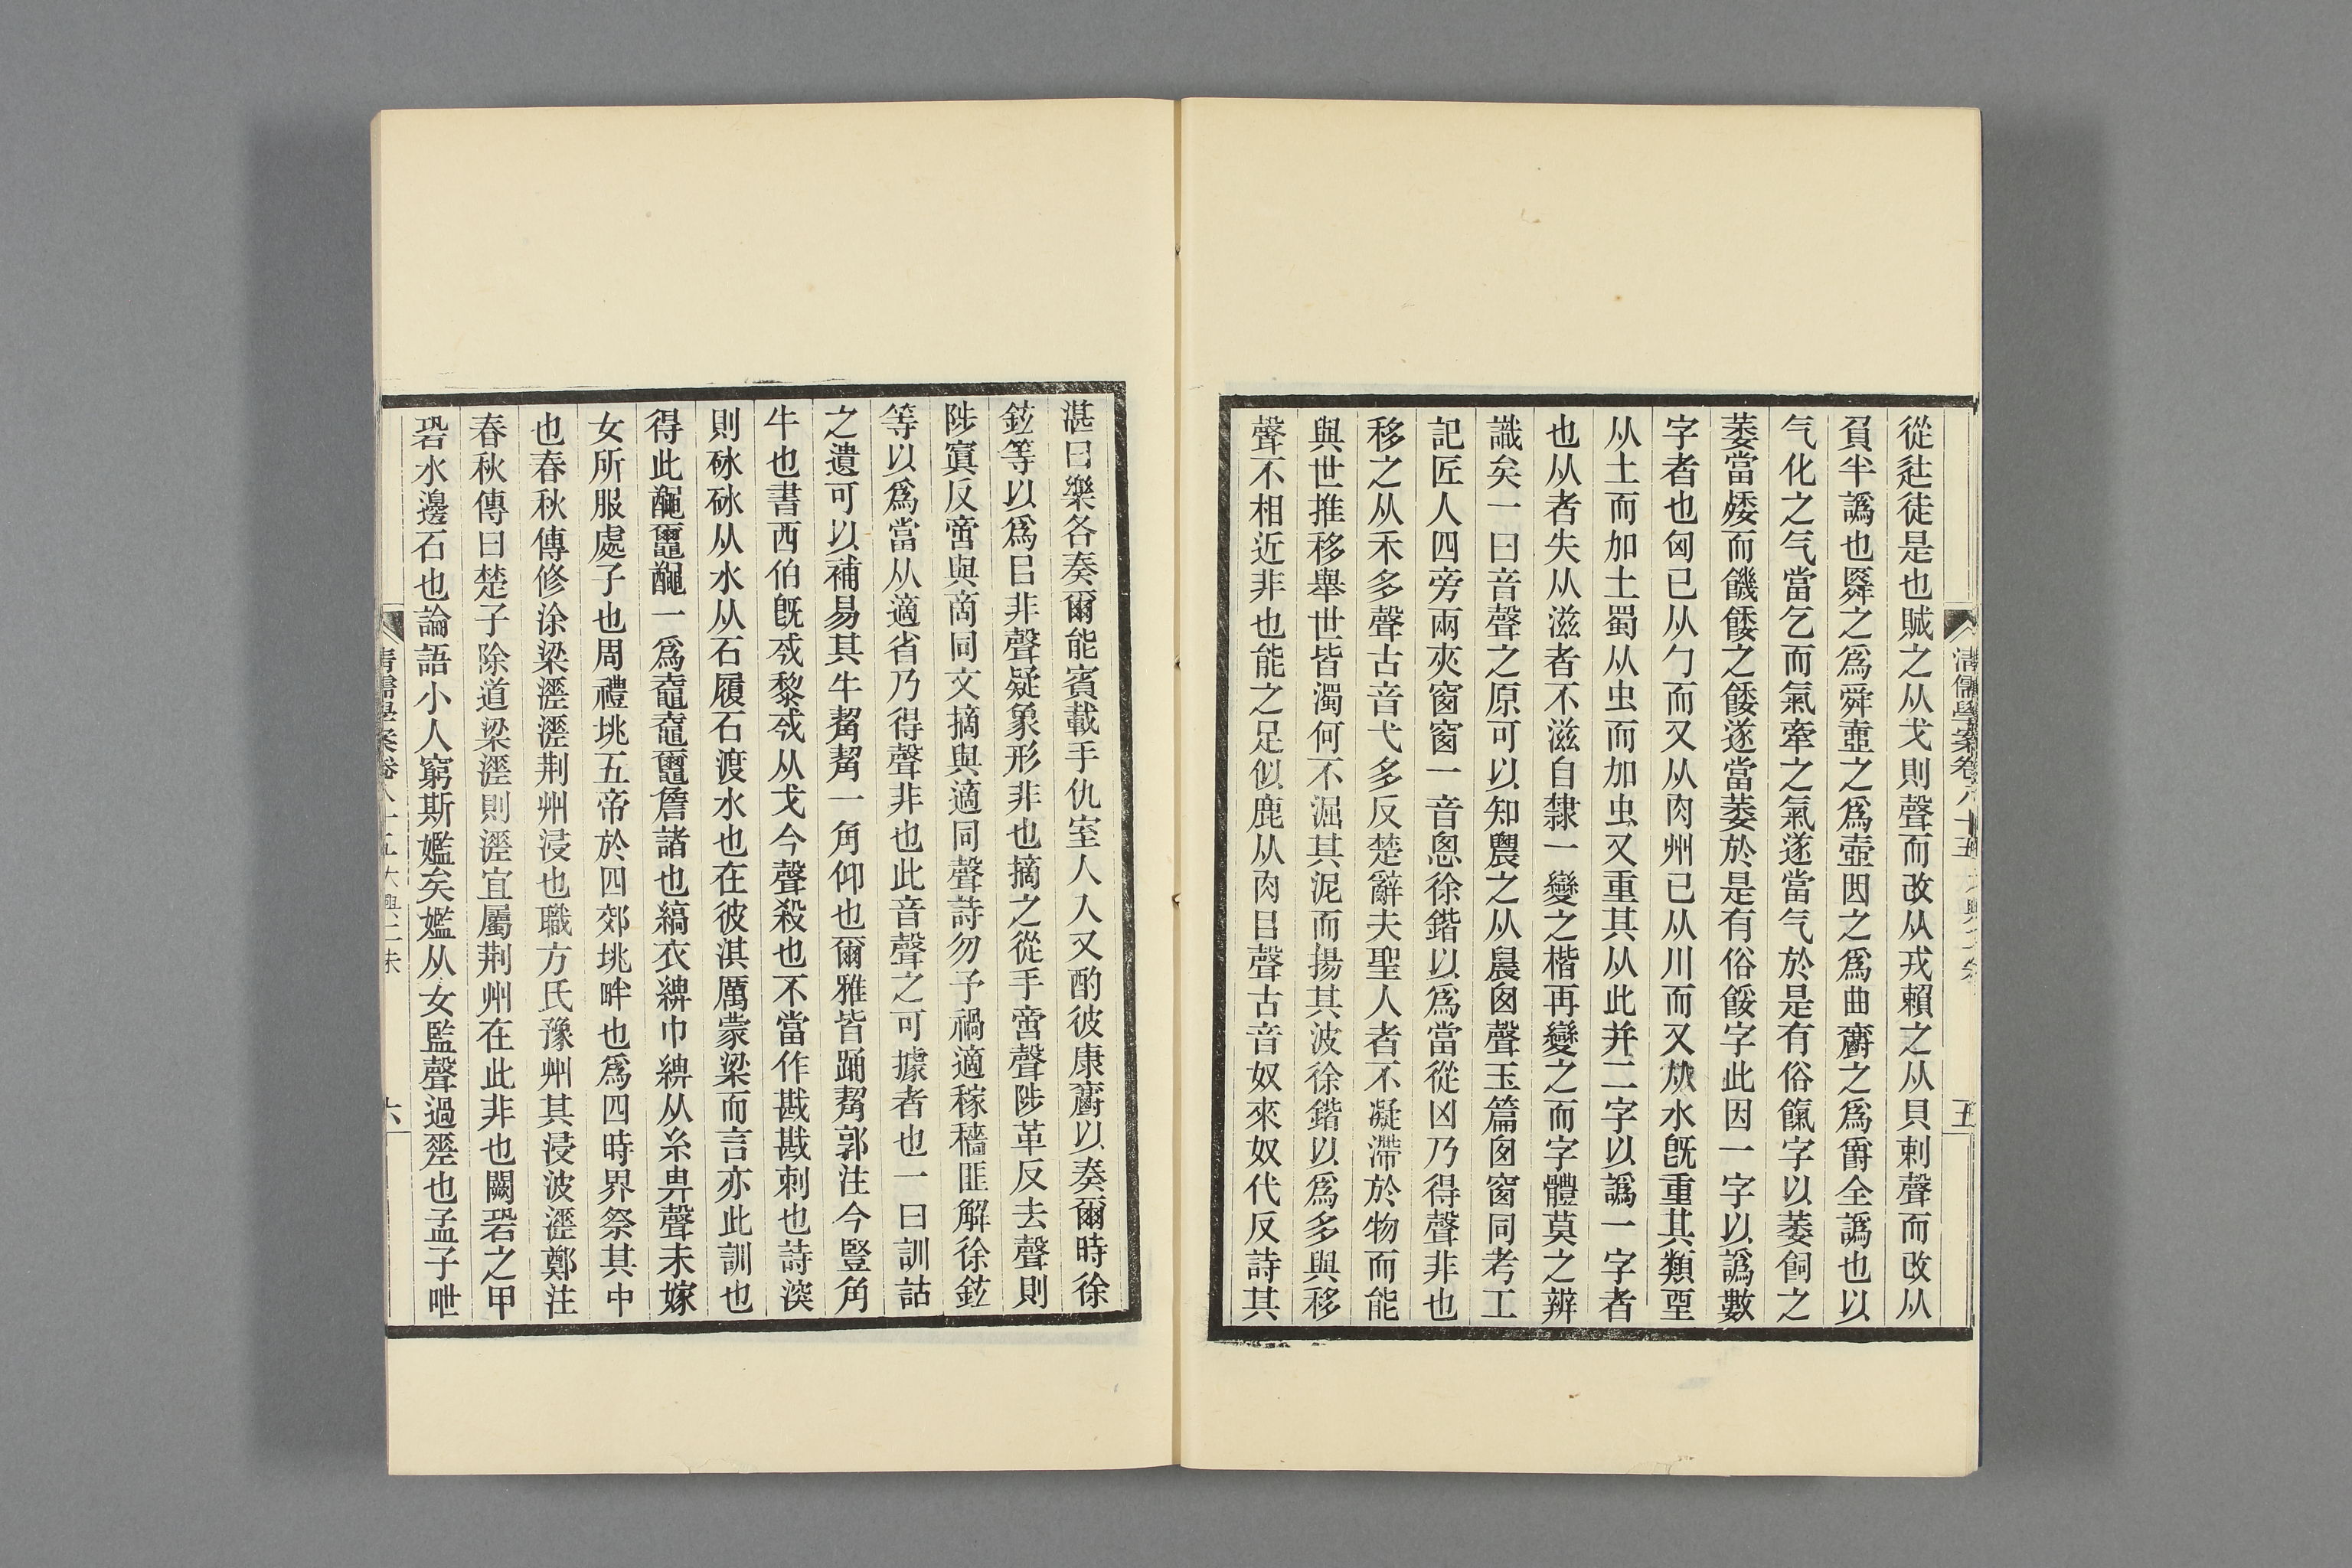 從辻徒是也賊之从戈則聲而改从戎賴之从貝剌聲而改从
負半譌也䑞之爲舜壷之爲壺𠚖之爲曲𤖴之爲爵全譌也以
气化之气當乞而氣牽之氣遂當气於是有俗餼字以萎飼之
萎當矮而饑餧之餧遂當萎於是有俗餒字此因一字以譌數
字者也匈已从勹而又从肉州已从川而又从水旣重其類垔
从土而加土蜀从虫而加虫又重其从此并二字以譌一字者
也从者失从滋者不滋自隸一變之楷再變之而字體莫之辨
識矣一曰音聲之原可以知䢉之从晨囪聲玉篇囪窗同考工
記匠人四旁兩夾窗窗一音恖徐鍇以爲當從凶乃得聲非也
移之从禾多聲古音弋多反楚辭夫聖人者不凝滯於物而能
與世推移舉世皆濁何不淈其泥而揚其波徐鍇以爲多與移
聲不相近非也能之足似鹿从肉㠯聲古音奴來奴代反詩其
清儒學案卷八十五
五
湛曰樂各奏爾能賓載手仇室人入又酌彼康𤖴以奏爾時徐
鉉等以爲㠯非聲疑象形非也摘之從手啻聲陟革反去聲則
陟寘反啻與商同文摘與適同聲詩勿予禍適稼穡匪解徐鉉
等以爲當从適省乃得聲非也此音聲之可據者也一曰訓詁
之遺可以補易其牛觢觢一角仰也爾雅皆踊觢郭注今豎角
牛也書西伯旣𢦟黎𢦟从戈今聲殺也不當作戡戡刺也詩深
則砅砅从水从石履石渡水也在彼淇厲蒙梁而言亦此訓也
得此𪓰𪓿𪓰一爲𪓐𪓐𪓿詹諸也縞衣綥巾綥从糸畀聲未嫁
女所服處子也周禮垗五帝於四郊垗畔也爲四時界祭其中
也春秋傳修涂梁溠溠荆州浸也職方氏豫州其浸波溠鄭注
春秋傳曰楚子除道梁溠則溠宜屬荆州在此非也闕碧之甲
碧水邊石也論語小人窮斯㜮矣㜮从女監聲過差也孟子呭
六